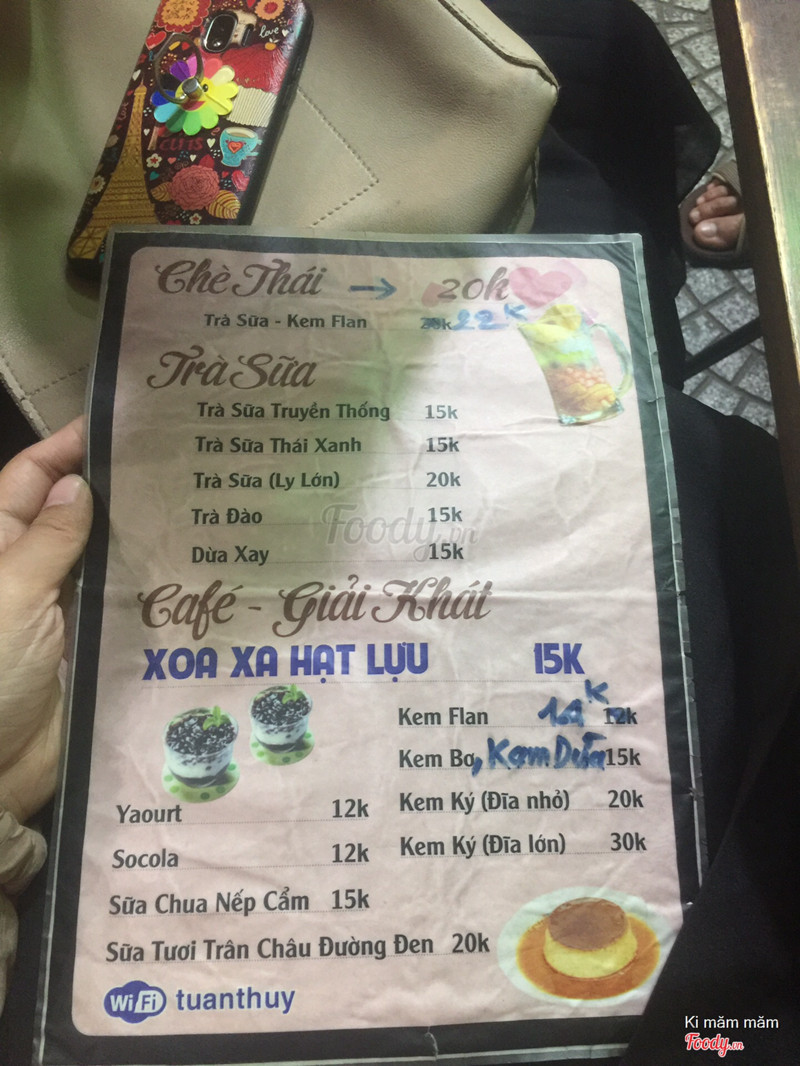 love
Chè Thái → 20k
Trà Sữa - Kem Flan 20k 22k
Trà Sữa
Trà Sữa Truyền Thống 15k
Trà Sữa Thái Xanh 15k
Trà Sữa (Ly Lớn) 20k
Trà Đào 15k
Foody.vn
Dừa Xay 15k
Café - Giải Khát
XOA XA HẠT LỰU 15K
Kem Flan 14k 12k
Kem Bơ, Kem Dừa 15k
Kem Ký (Đĩa nhỏ) 20k
Kem Ký (Đĩa lớn) 30k
Yaourt 12k
Socola 12k
Sữa Chua Nếp Cẩm 15k
Sữa Tươi Trân Châu Đường Đen 20k
WiFi tuanthuy
Ki măm măm
Foody.vn